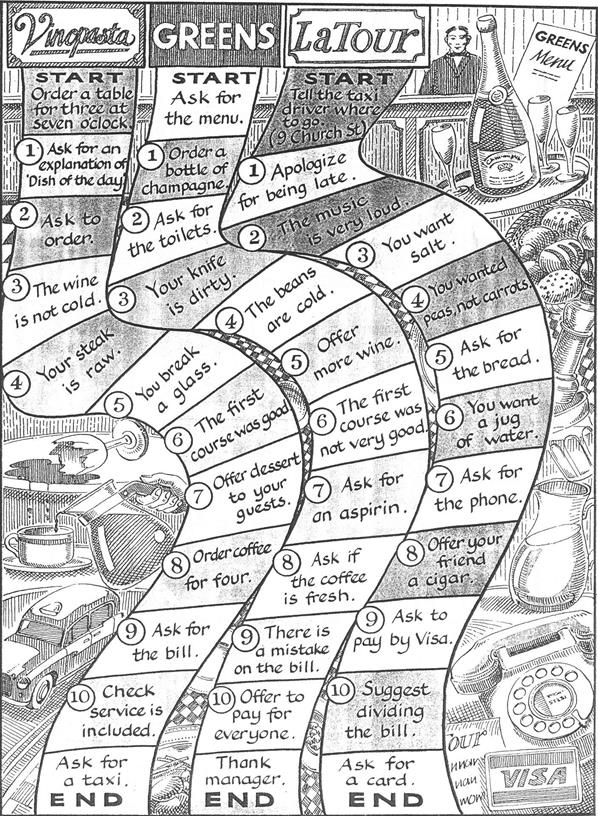 Vinopasta
START
Order a table
for three at
seven o'clock.
1 Ask for an
explanation of
'Dish of the day'.
2 Ask to
order.
3 The wine
is not cold.
4 Your steak
is raw.
5 You break
a glass.
6 The first
course was good.
7 Offer dessert
to your
guests.
8 Order coffee
for four.
9 Ask for
the bill.
10 Check
service is
included.
Ask for
a taxi.
END
GREENS
START
Ask for
the menu.
1 Order a
bottle of
champagne.
2 Ask for
the toilets.
3 Your knife
is dirty.
4 The beans
are cold.
5 Offer
more wine.
6 The first
course was
not very good.
7 Ask for
an aspirin.
8 Ask if
the coffee
is fresh.
9 There is
a mistake
on the bill.
10 Offer to
pay for
everyone.
Thank
manager.
END
LaTour
START
Tell the taxi
driver where
to go.
(9 Church St)
1 Apologize
for being late.
2 The music
is very loud.
3 You want
salt.
4 You wanted
peas, not carrots.
5 Ask for
the bread.
6 You want
a jug
of water.
7 Ask for
the phone.
8 Offer your
friend
a cigar.
9 Ask to
pay by Visa.
10 Suggest
dividing
the bill.
Ask for
a card.
END
GREENS
Menu
VISA